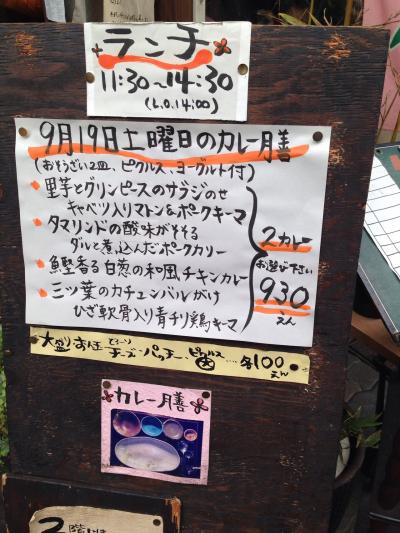 ランチ
11:30~14:30
(L.O.14:00)
9月19日土曜日のカレー膳
(おそうざい2皿、ピクルス、ヨーグルト付)
里芋とグリンピースのサブジのせ
キャベツ入りマトン&ポークキーマ
タマリンドの酸味がそそる
ダルと煮込んだポークカリー
鰹香る白葱の和風チキンカレー
三ツ葉のカチュンバルがけ
ひざ軟骨入り青チリ鶏キーマ
2カレー
お選び下さい
930
えん
大盛り
チーズ・パッチー・ピクルス・・・各100
えん
カレー膳